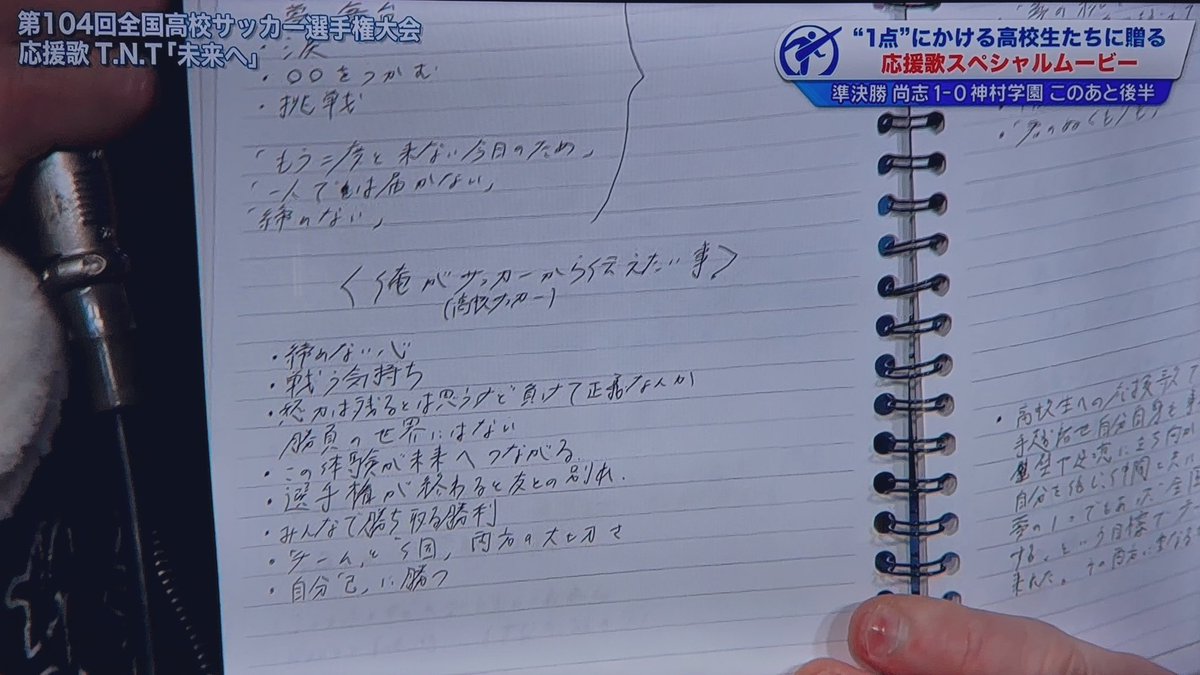 第104回全国高校サッカー選手権大会
応援歌 T.N.T「未来へ」
“1点”にかける高校生たちに贈る
応援歌スペシャルムービー
準決勝 尚志 1-0 神村学園 このあと後半
・涙
・〇〇をつかむ
・挑戦
「もう二度と来ない今日のため」
「一人では届かない」
「締めない」
〈俺がサッカーから伝えたい事〉
(高校サッカー)
・締めない心
・戦う気持ち
・努力は残るとは思うけど負けて正解なんか
勝負の世界にはない
・この体験が未来へつながる
・選手権が終わると友との別れ.
・みんなで勝ち取る勝利
・「チーム」と「個」両方の大切さ
・自分「己」に勝つ
・高校生への応援歌
手越祐也自分自身も
自分を信じ仲間と共に
夢の1つでもあった全国
する、という目標で
来た。その両方に